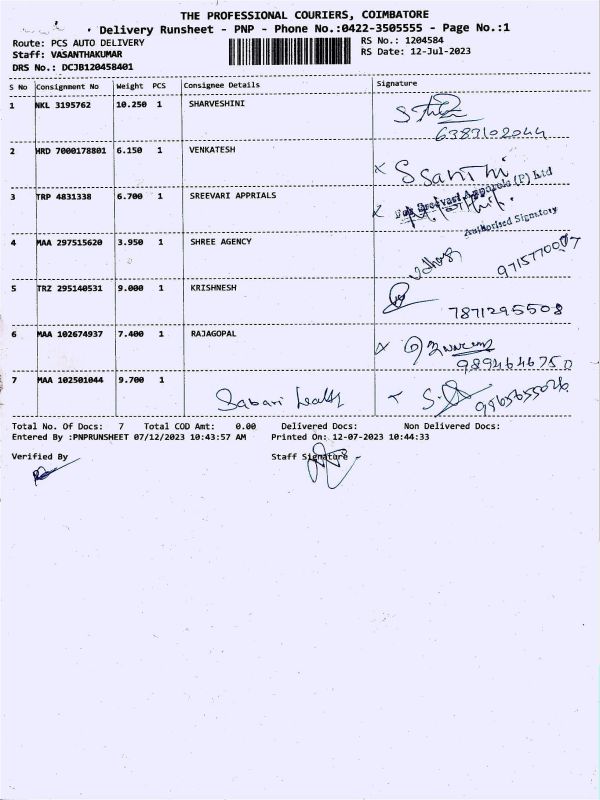 THE PROFESSIONAL COURIERS, COIMBATORE
Delivery Runsheet - PNP - Phone No.:0422-3505555 - Page No.:1
Route: PCS AUTO DELIVERY
RS No.: 1204584
Staff: VASANTHAKUMAR
RS Date: 12-Jul-2023
DRS No.: DCJB120458401
S No Consignment No Weight PCS Consignee Details Signature
1 NKL 3195762 10.250 1 SHARVESHINI
6383102044
2 HRD 7000178801 6.150 1 VENKATESH
x Ssanthi
3 TRP 4831338 6.700 1 SREEVARI APPRIALS
For Sreevari Apparels (P) Ltd
Authorised Signatory
4 MAA 297515620 3.950 1 SHREE AGENCY
9715770007
5 TRZ 295140531 9.000 1 KRISHNESH
7871295508
6 MAA 102674937 7.400 1 RAJAGOPAL
9894646750
7 MAA 102501044 9.700 1
Sabari
Total No. Of Docs: 7 Total COD Amt: 0.00 Delivered Docs: Non Delivered Docs:
Entered By :PNPRUNSHEET 07/12/2023 10:43:57 AM Printed On: 12-07-2023 10:44:33
Verified By Staff Signature